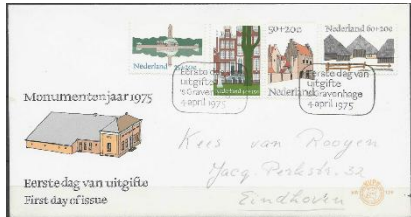 50+20c
Nederland 60+20c
Nederland
Nederland
Eerste dag van
uitgifte
's Gravenhage
4 april 1975
Eerste dag van
uitgifte
's Gravenhage
4 april 1975
Monumentenjaar 1975
Kees van Rooyen
Jacq. Perkstr. 32
Eindhoven
Eerste dag van uitgifte
First day of issue